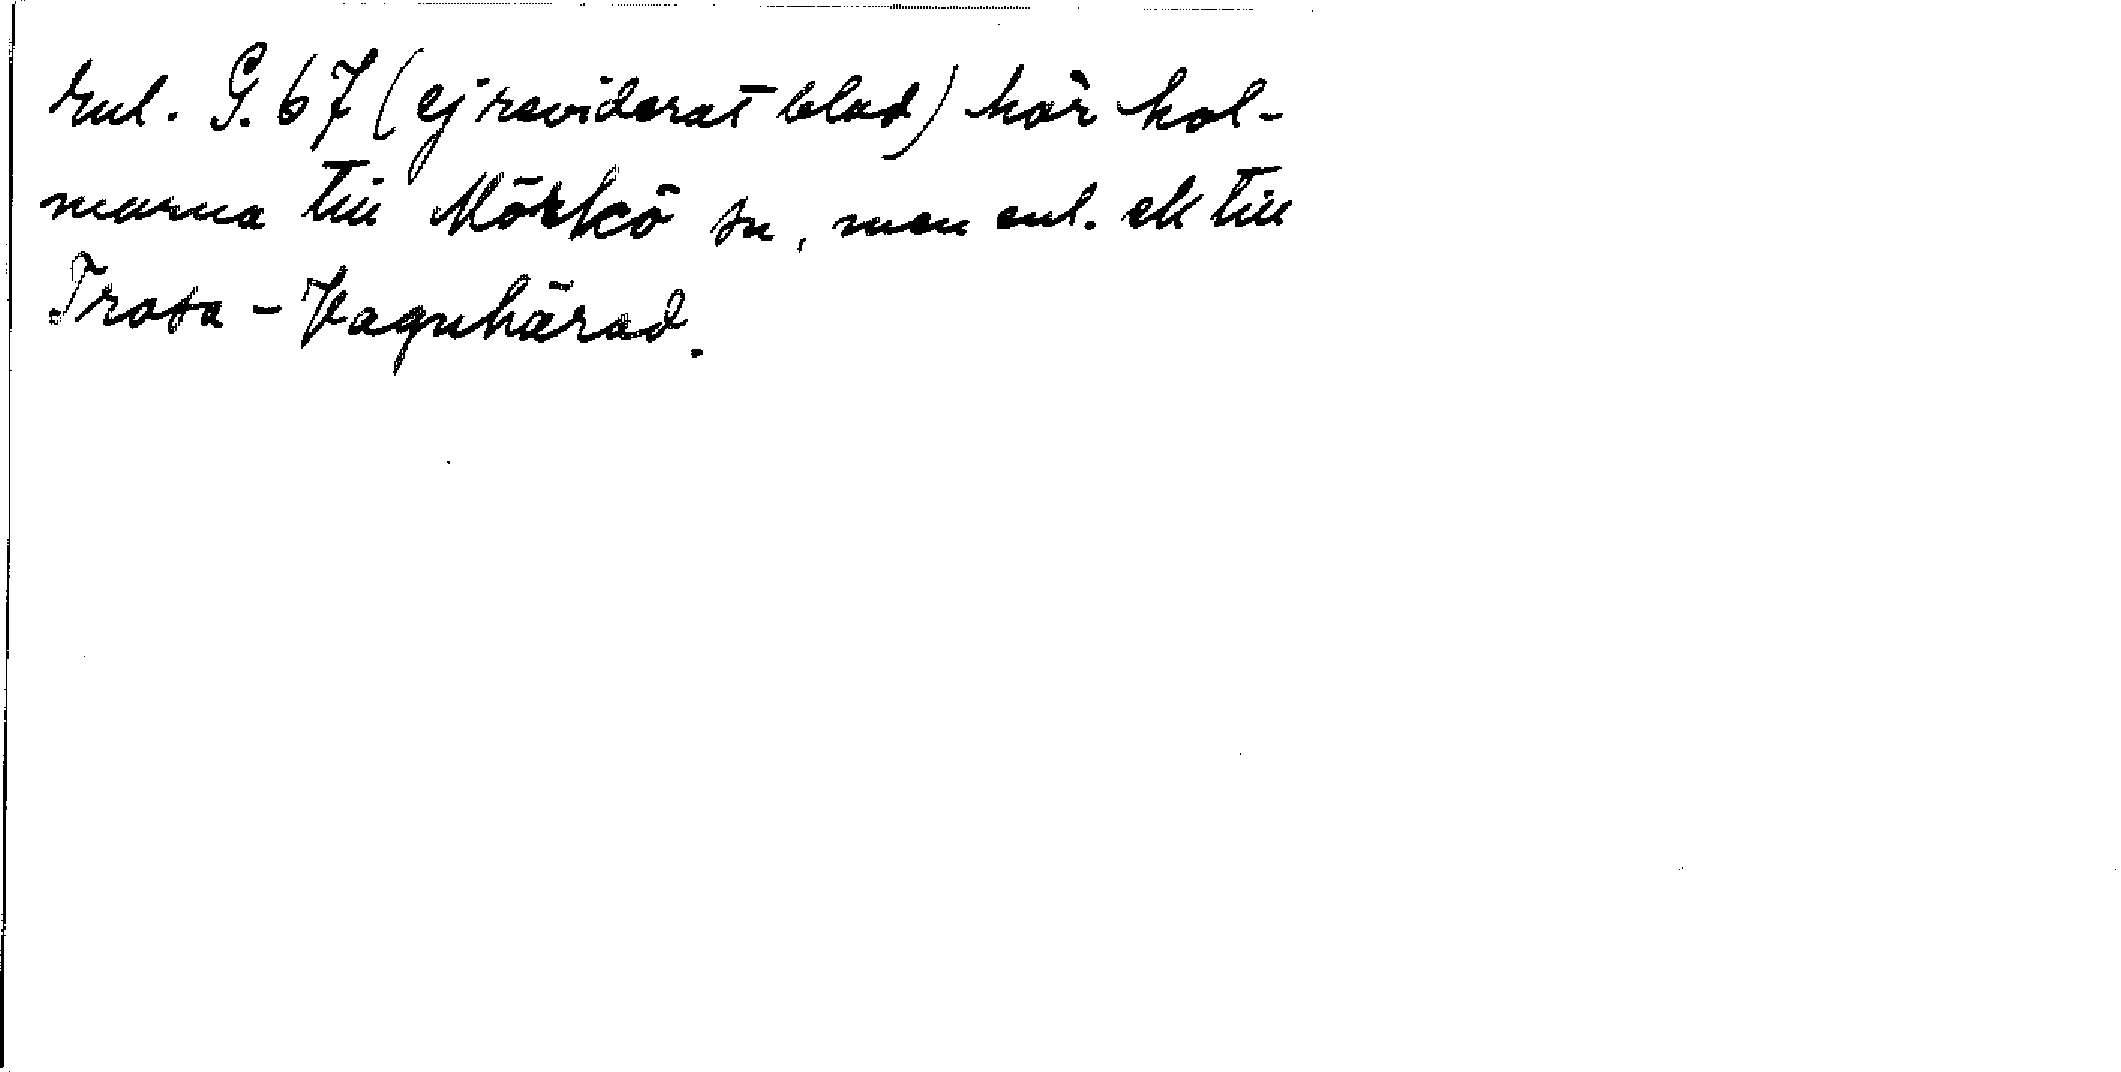 Enl. G. 67 (ej reviderat blad) hör hol-
marna till Mörkö sn, men enl. ek till
Trosa - Vagnhärad.